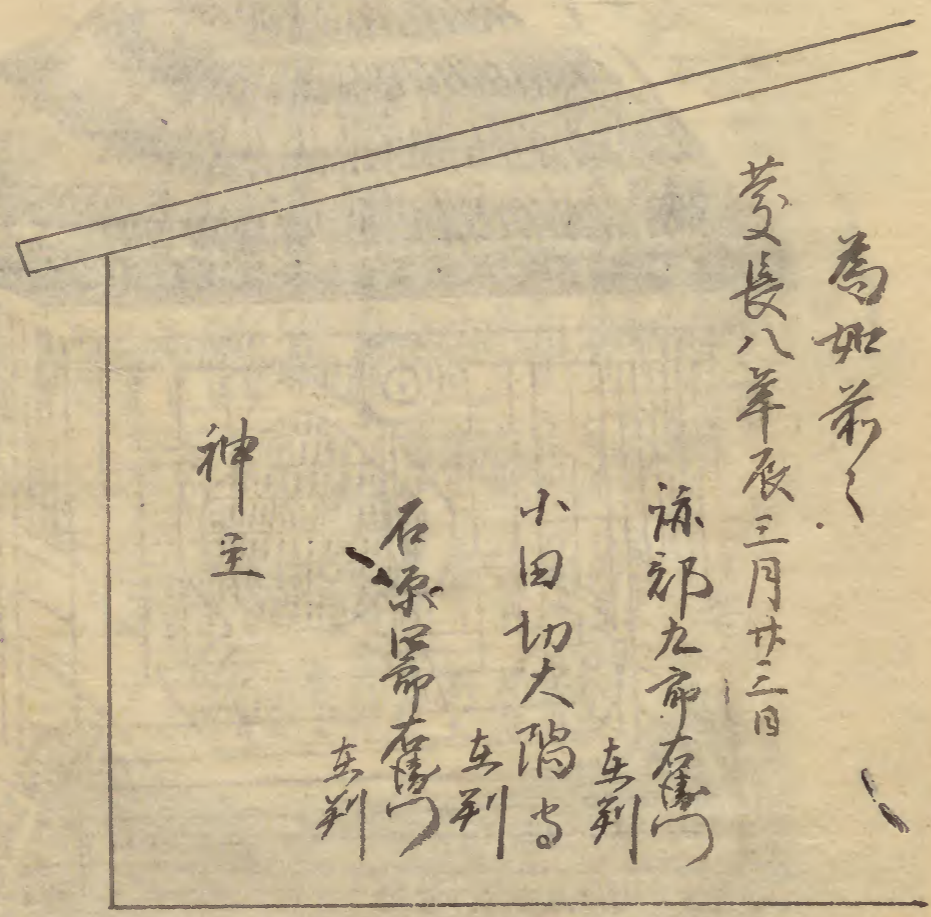 為如前々
慶長八年辰三月廿三日
跡部九郎右衛門
在判
小田切大隅守
在判
石原四郎右衛門
在判
神主